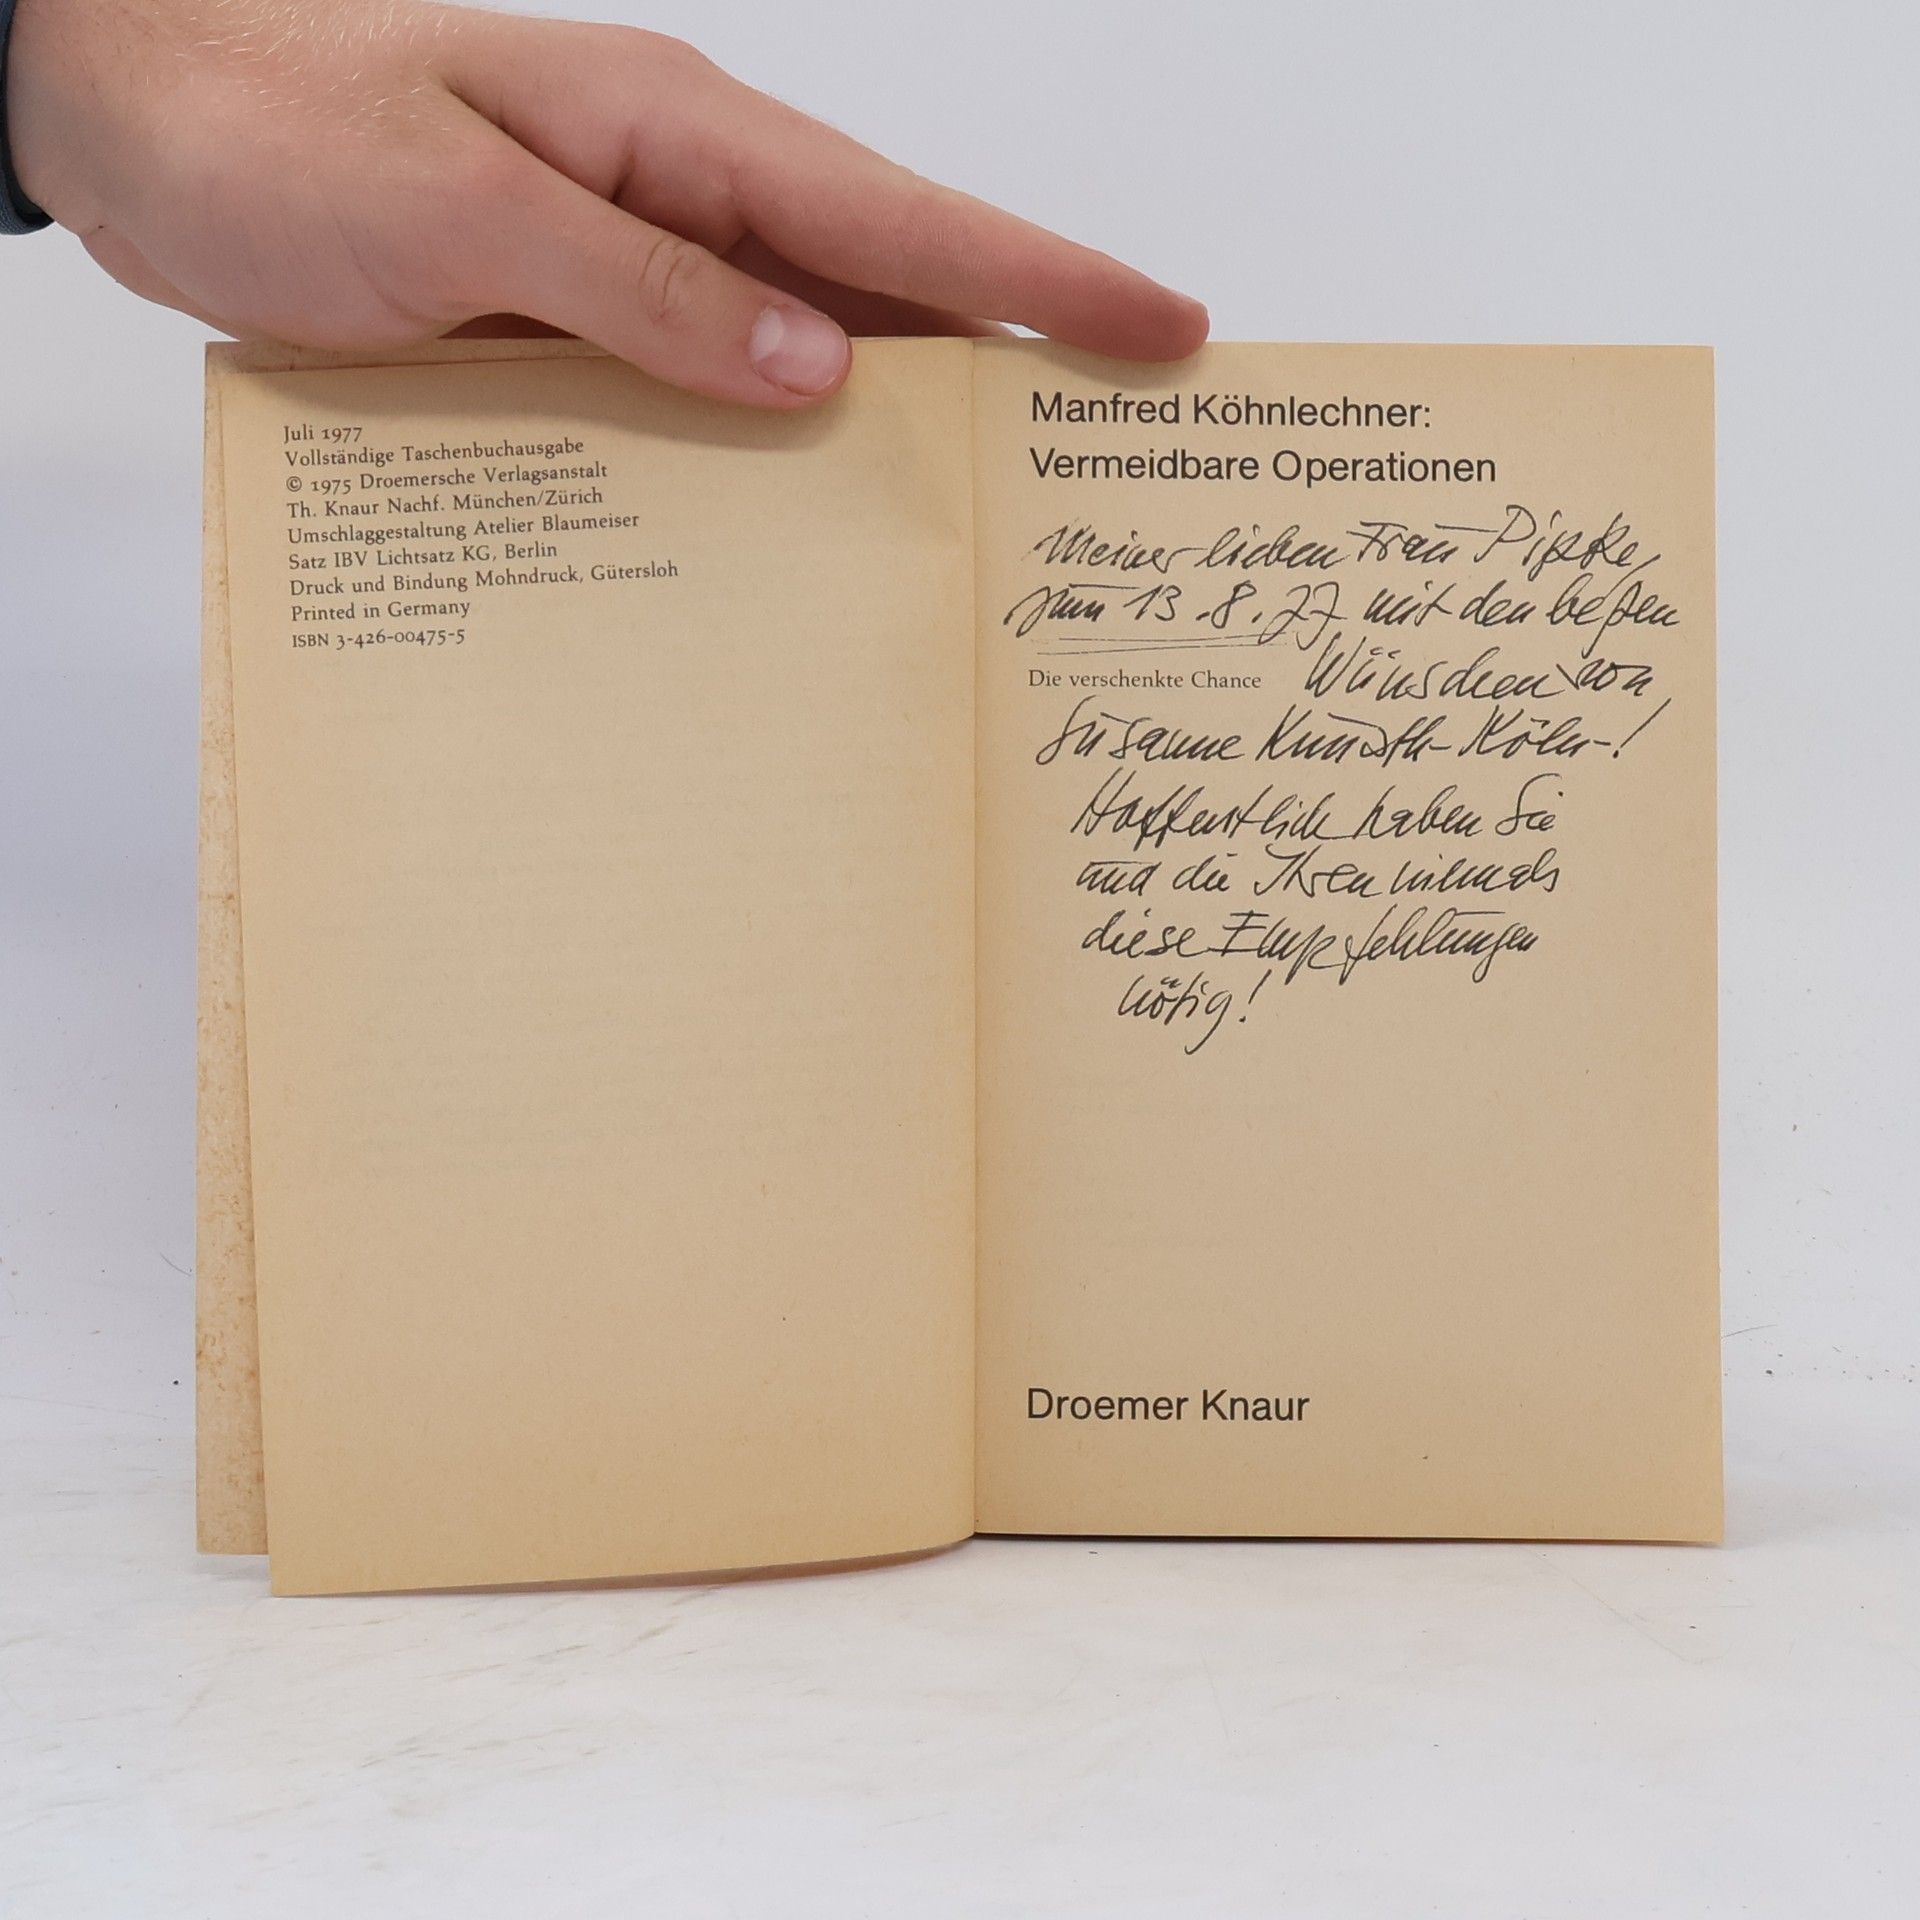 Juli 1977
Vollständige Taschenbuchausgabe
© 1975 Droemersche Verlagsanstalt
Th. Knaur Nachf. München/Zürich
Umschlaggestaltung Atelier Blaumeiser
Satz IBV Lichtsatz KG, Berlin
Druck und Bindung Mohndruck, Gütersloh
Printed in Germany
ISBN 3-426-00475-5
Manfred Köhnlechner:
Vermeidbare Operationen
Meiner lieben Frau
zum 13.8.77 mit den besten
Die verschenkte Chance
Wünschen von
Susanne Köln-!
Hoffentlich haben Sie
und die Ihren niemals
diese Empfehlungen
nötig!
Droemer Knaur